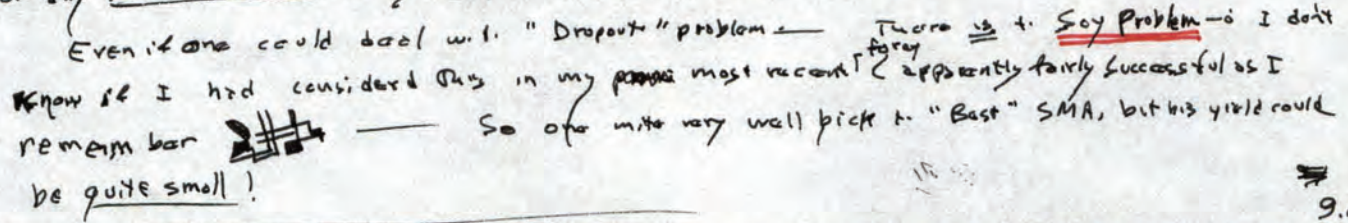 Even if one could deal w.t. "Dropout" problem — There is t. Soy Problem — I don't
foray
know if I had considerd this in my most recent apparently fairly successful as I
remem bar — So one mite very well pick t. "Best" SMA, but his yield could
be quite small!
9.